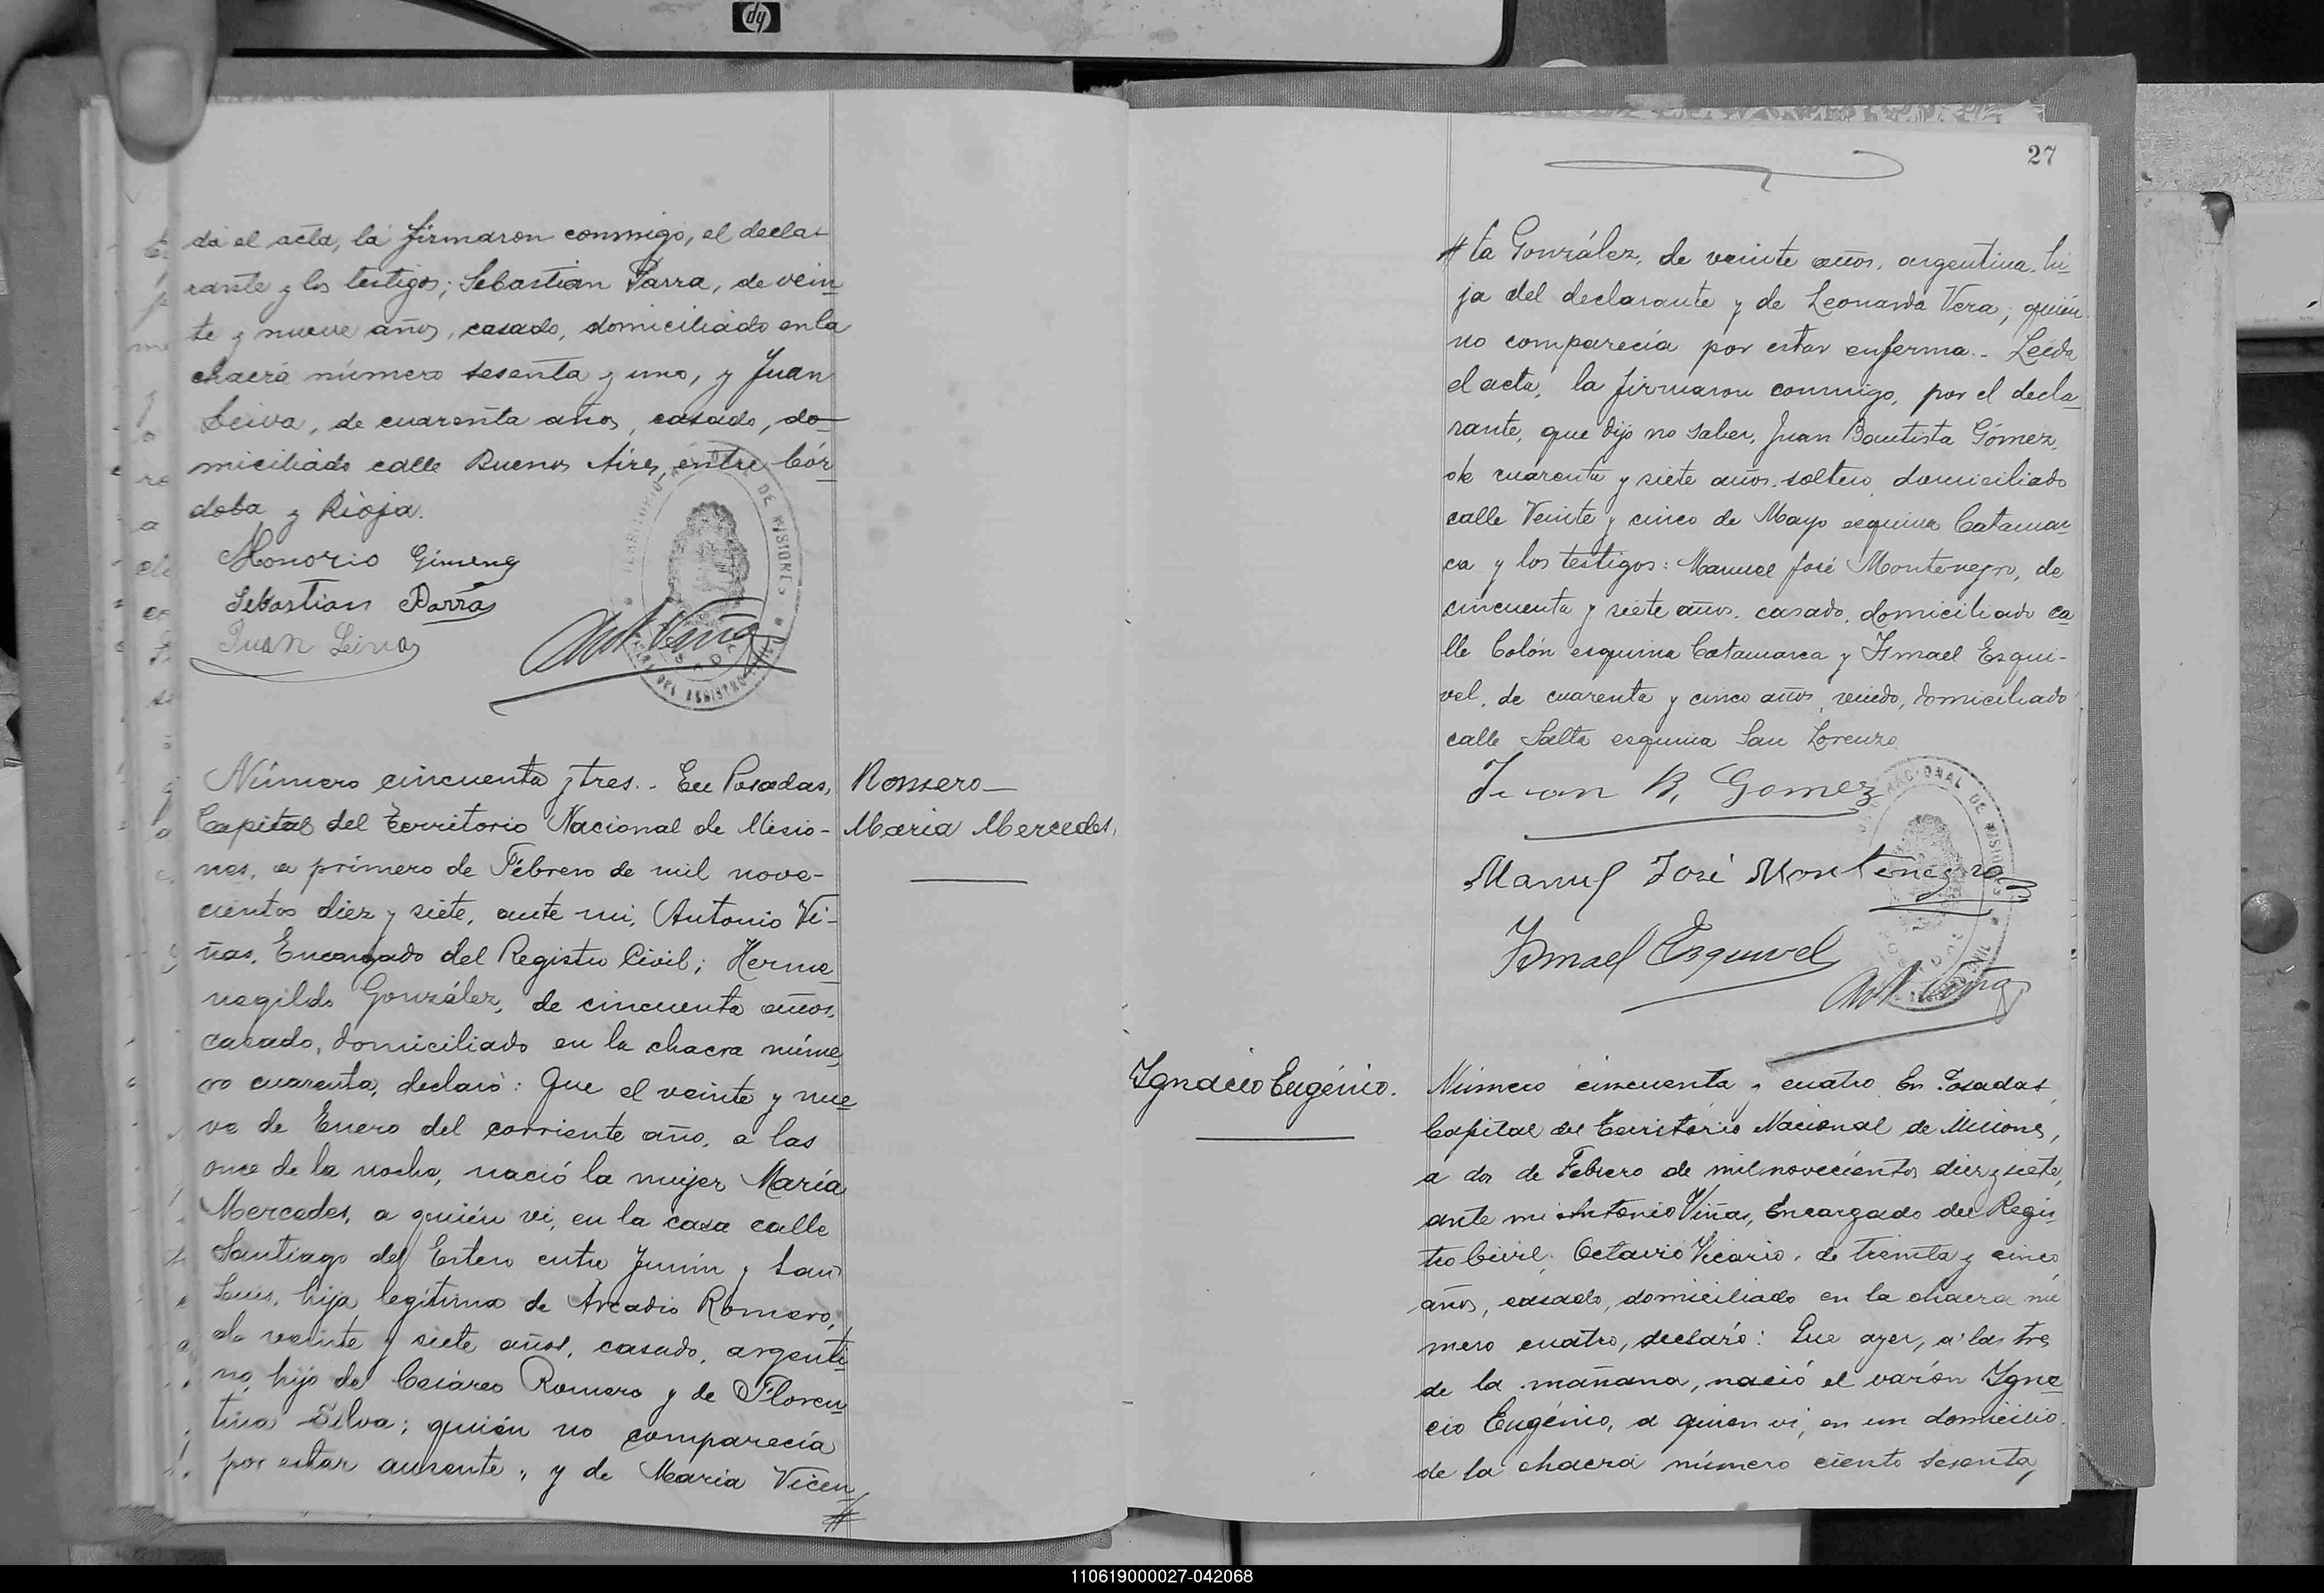 hp
da el acta, la firmaron conmigo, el decla-
rante y los testigos; Sebastian Parra, de vein-
te y nueve años, casado, domiciliado en la
chacra número sesenta y uno, y Juan
Leiva, de cuarenta años, casado, do-
miciliado calle Buenos Aires, entre Cór-
doba y Rioja.
Honorio Gimenez
Sebastian Parra
Juan Leiva
Ant Viñas
Número cincuenta y tres.. En Posadas,
Capital del Territorio Nacional de Misio-
nes, a primero de Febrero de mil nove-
cientos diez y siete, ante mi, Antonio Vi-
ñas, Encargado del Registro Civil; Herme-
negildo González, de cincuenta años,
casado, domiciliado en la chacra núme-
ro cuarenta, declaró: Que el veinte y nue-
ve de Enero del corriente año, a las
once de la noche, nació la mujer María
Mercedes, a quién vi, en la casa calle
Santiago del Estero entre Junin y San
Luis, hija legítima de Arcadio Romero,
de veinte y siete años, casado, argenti-
no, hijo de Cesáreo Romero y de Floren-
tina Silva; quién no comparecía
por estar ausente, y de María Vicen-
#
Romero—
Maria Mercedes.
27
# ta González, de veinte años, argentina, hi-
ja del declarante y de Leonarda Vera; quién
no comparecía por estar enferma.- Leída
el acta, la firmaron conmigo, por el decla-
rante, que dijo no saber, Juan Bautista Gómez,
de cuarenta y siete años, soltero, domiciliado
calle Veinte y cinco de Mayo esquina Catamar-
ca y los testigos: Manuel José Montenegro, de
cincuenta y siete años, casado, domiciliado ca-
lle Colón esquina Catamarca y Ismael Esqui-
vel, de cuarenta y cinco años, viudo, domiciliado
calle Salta esquina San Lorenzo.
Juan B. Gomez
Manuel José Montenegro
Ismael Esquivel
Ant Viñas
Ignacio Eugénio.
Número cincuenta y cuatro. En Posadas,
Capital del Territorio Nacional de Misiones,
a dos de Febrero de mil novecientos diez y siete,
ante mi Antonio Viñas, Encargado del Regis-
tro Civil; Octavio Vicario, de treinta y cinco
años, casado, domiciliado en la chacra nú-
mero cuatro, declaró: Que ayer, a las tres
de la mañana, nació el varón Igna-
cio Eugénio, a quien vi, en un domicilio
de la chacra número ciento sesenta,
110619000027-042068